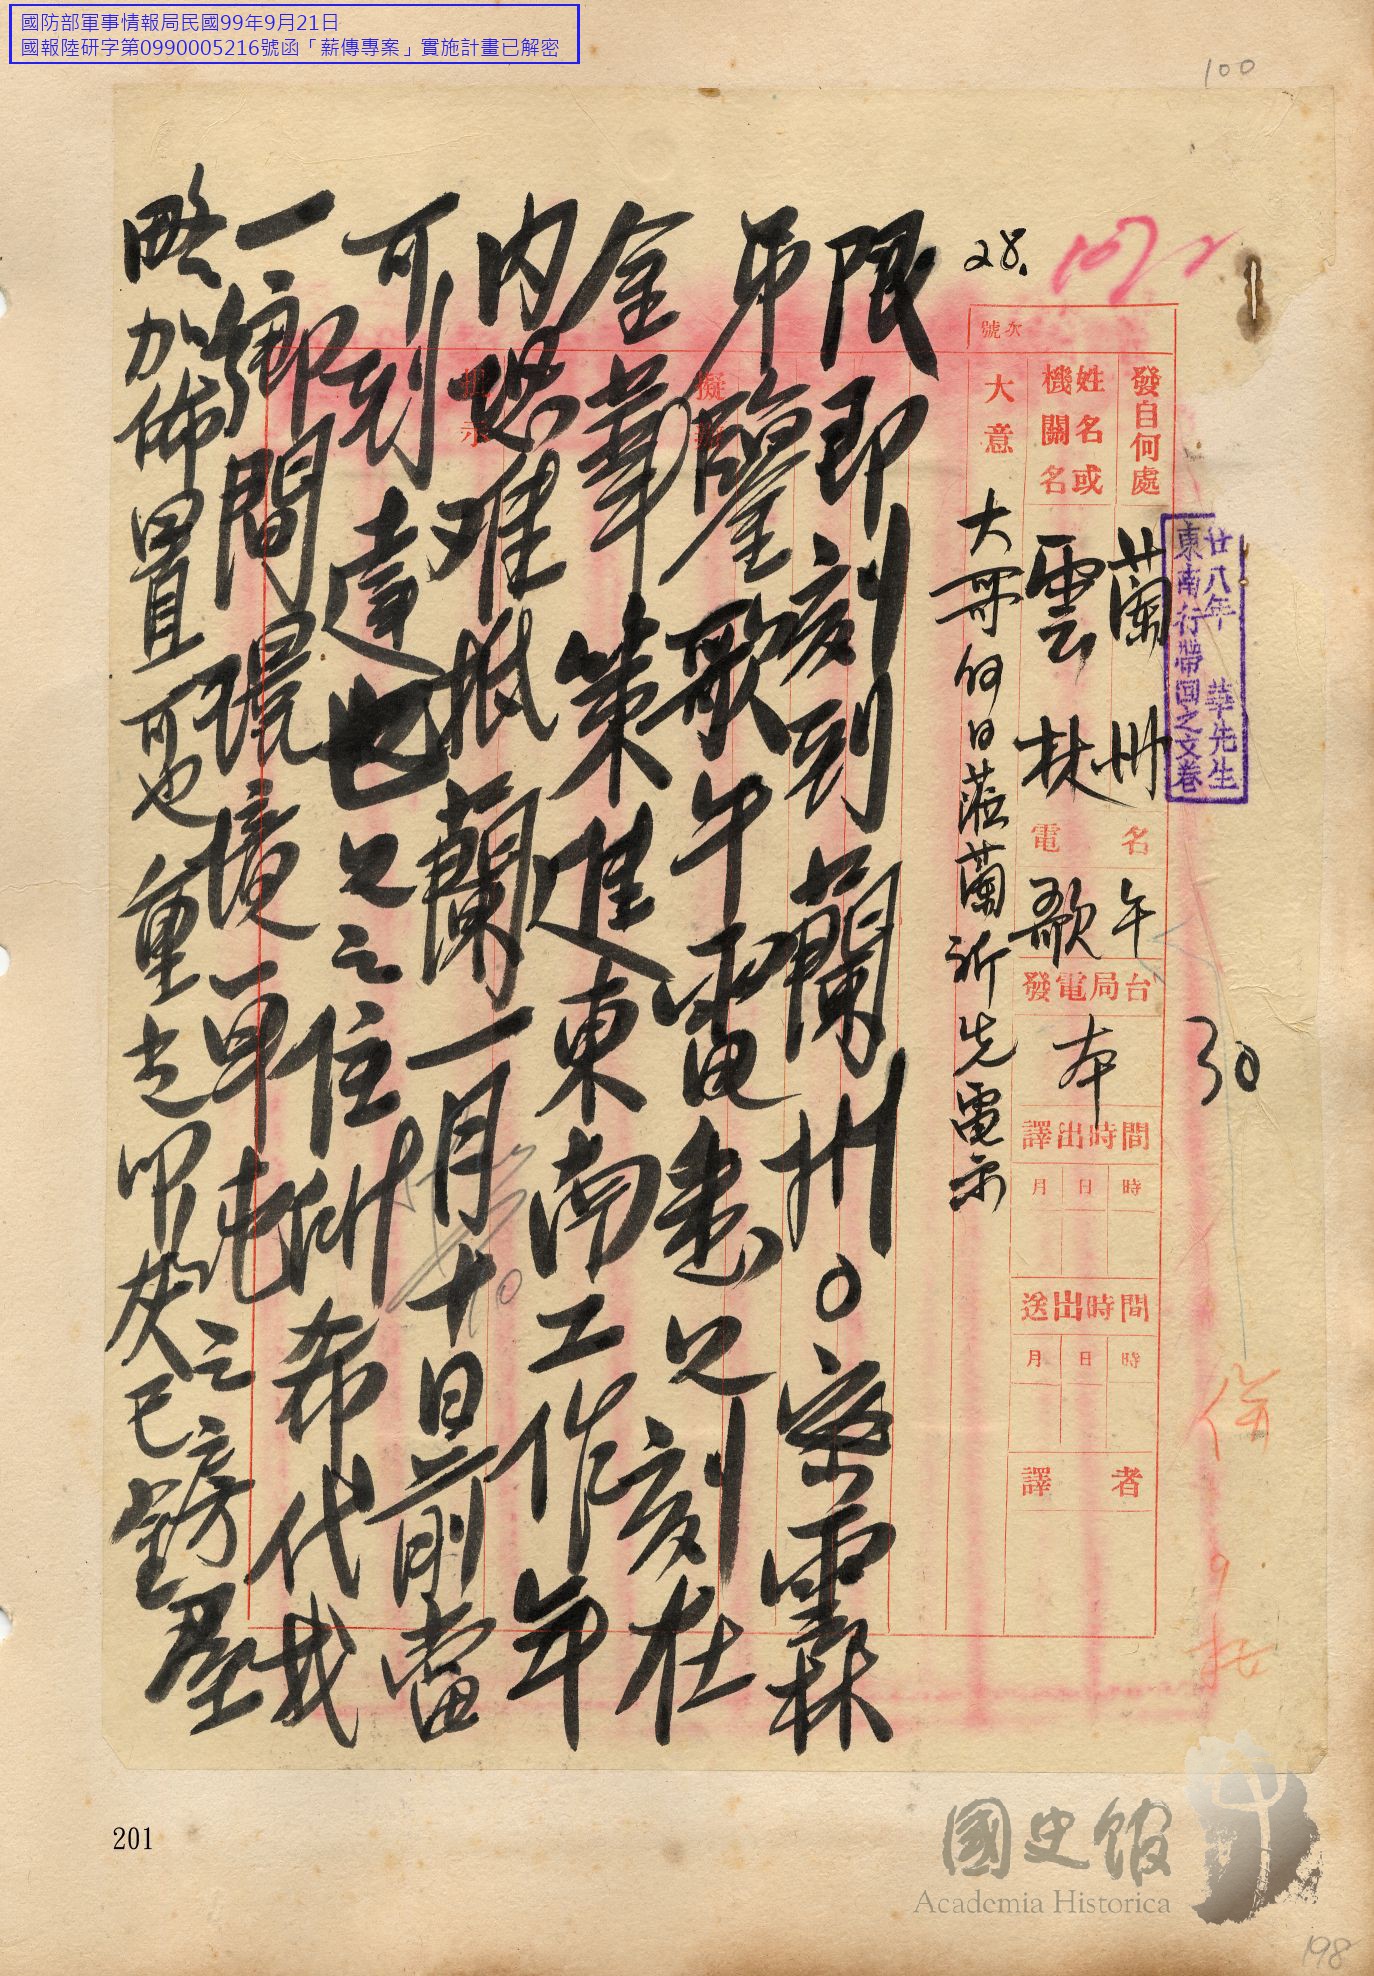 國防部軍事情報局民國99年9月21日
國報陸研字第0990005216號函「薪傳專案」實施計畫已解密
100
28.
廿八年 華先生
東南行帶回之文卷
30
發自何處 蘭州
姓名或機關名 雲林
電名 歌午
發電局台 本
譯出時間
月 日 時
送出時間
月 日 時
譯者
號次
大意 大哥何日蒞蘭祈先電示
擬辦
批示
限即刻到蘭州。密雲林
弟鑒歌午電悉兄刻在
金華策進東南工作年
內恐难抵蘭一月十日前當
可到達也兄之住所希代找
一鄉間環境單純之房屋
略加佈置可也 叩灰巳金
201
國史館
Academia Historica
198